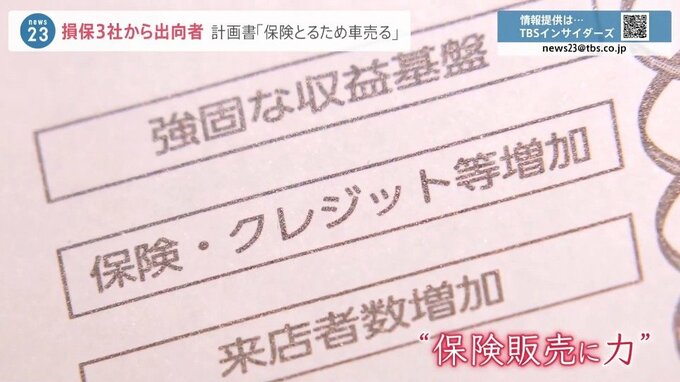 news
23
損保3社から出向者 計画書「保険とるため車売る」
情報提供は…
TBSインサイダーズ
news23@tbs.co.jp
強固な収益基盤
保険・クレジット等増加
来店者数増加
“保険販売に力”